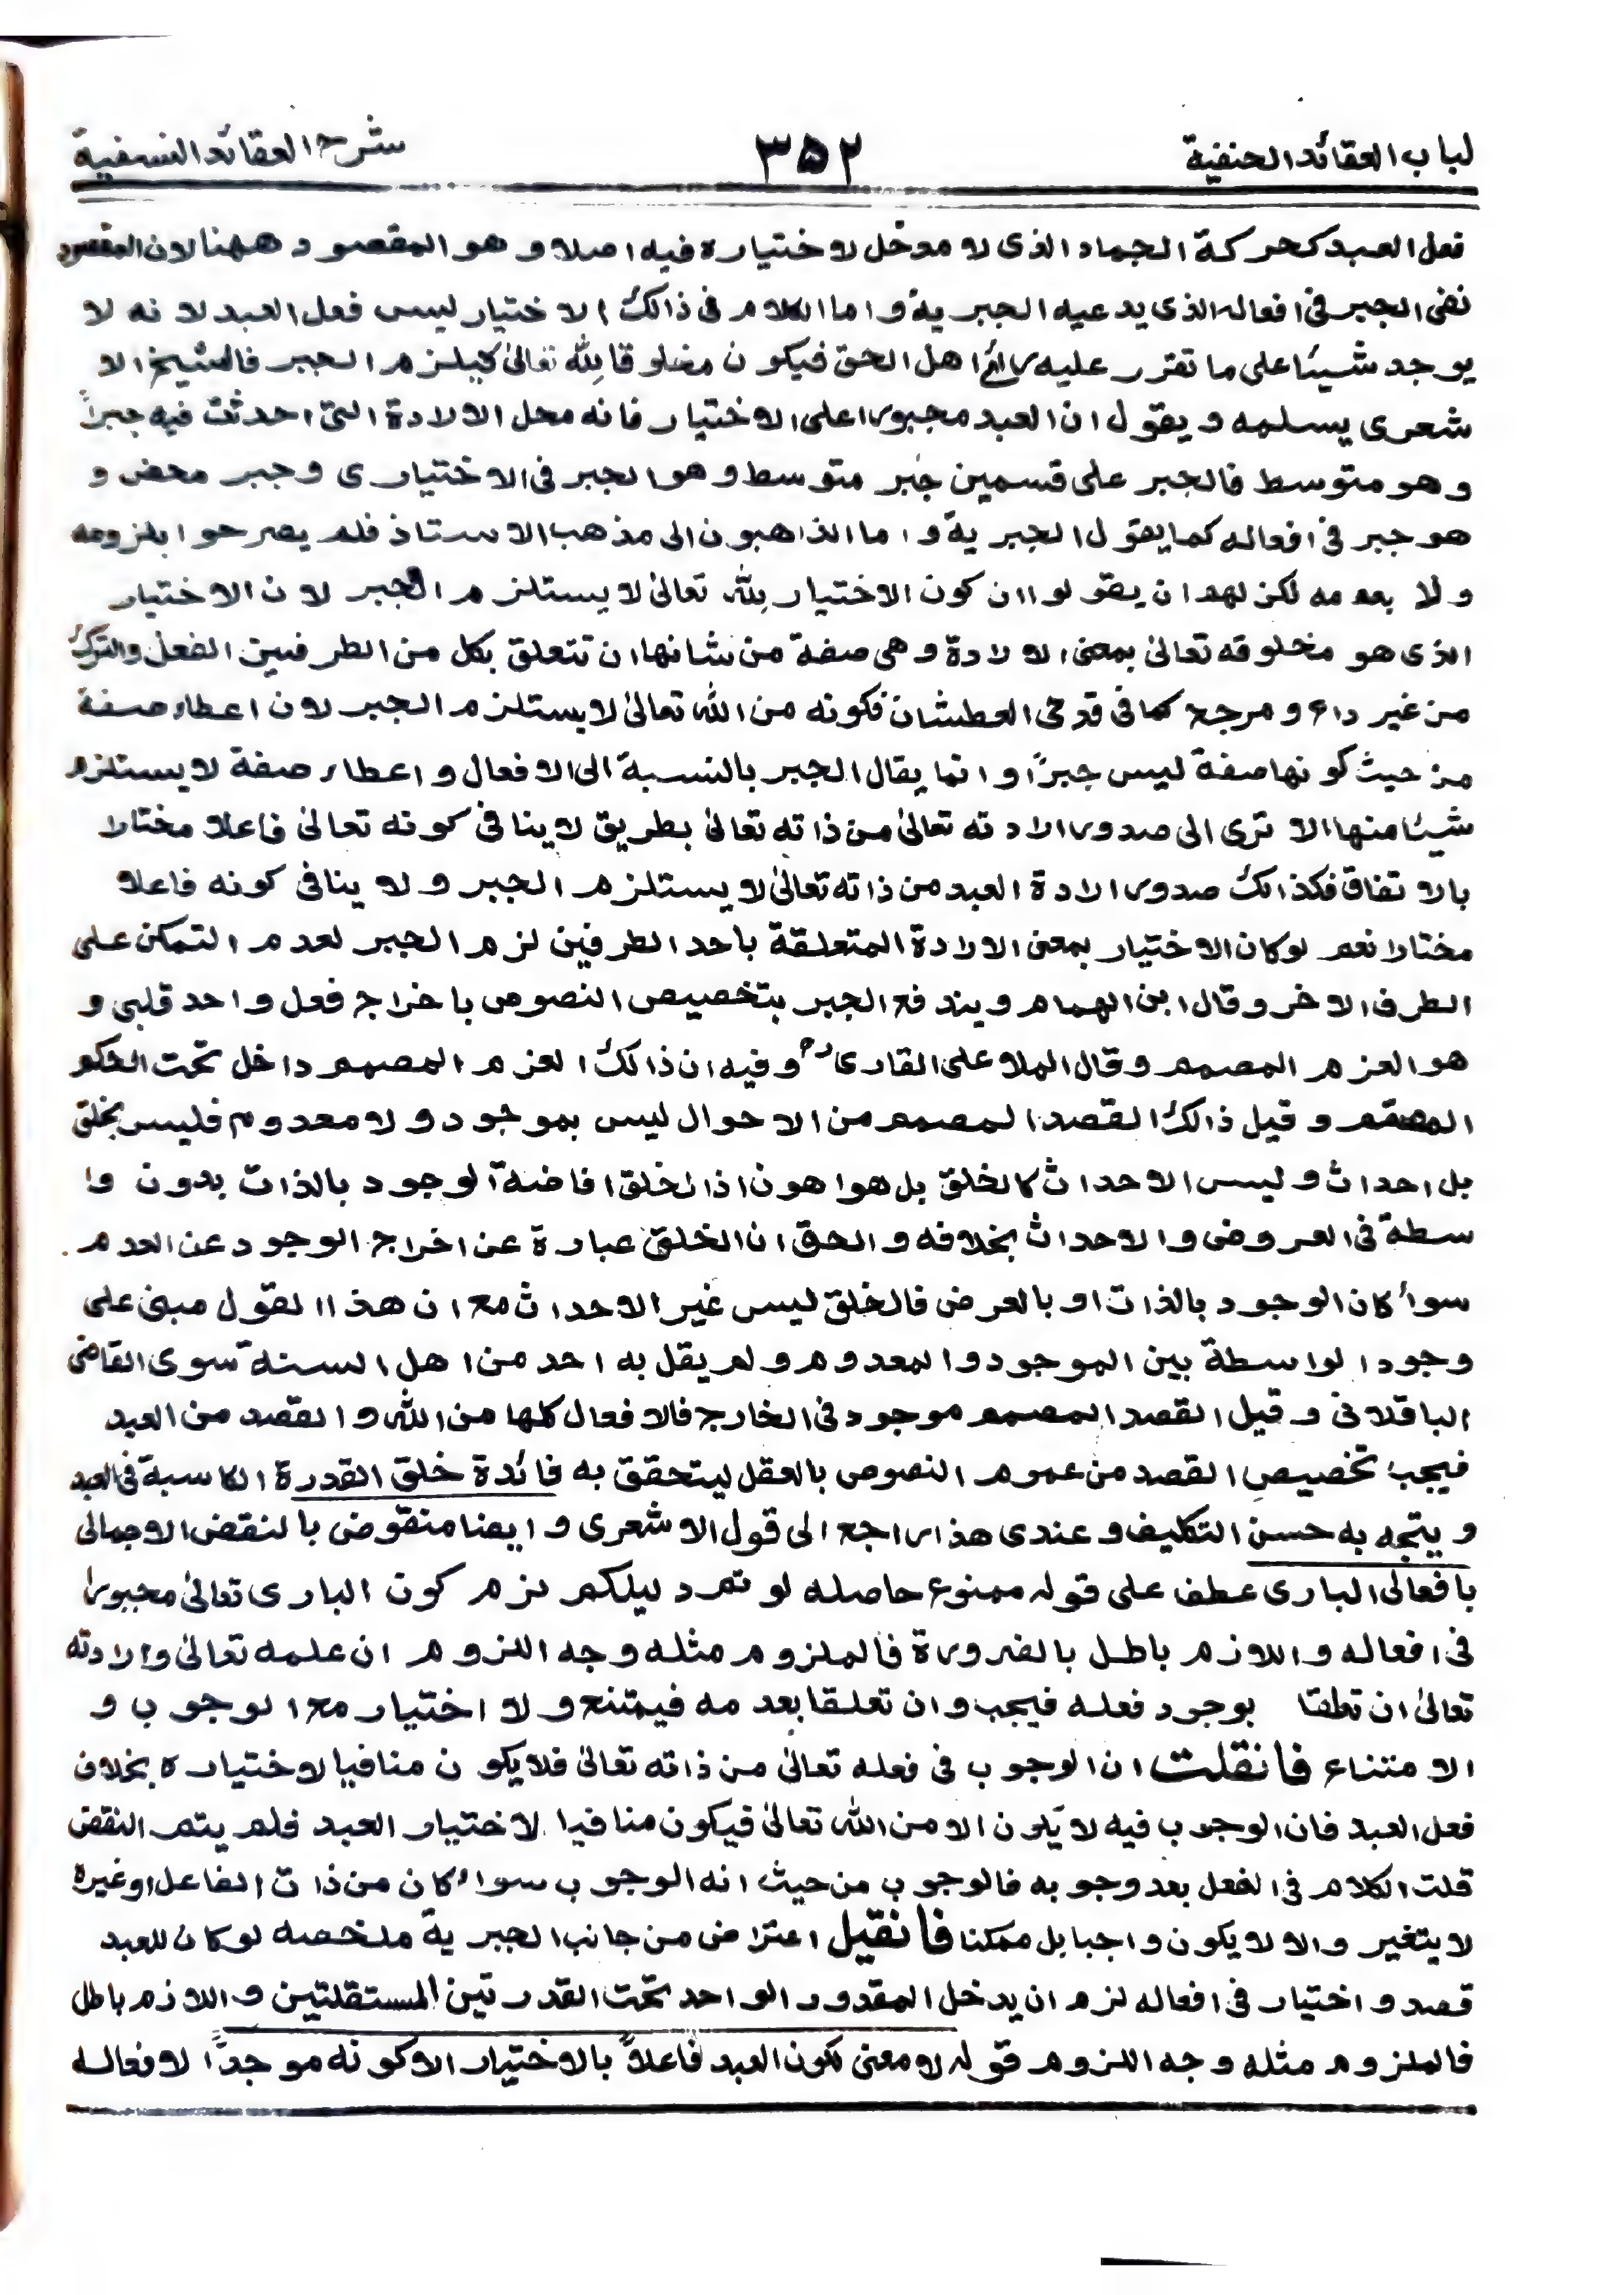 لباب العقائد الحنفية ٣٥٢ شرح العقائد النسفية
فعل العبد كحركة الجماد الذى لا مدخل لاختياره فيه اصلا و هو المقصود ههنا لان المقصود
نفى الجبر فى افعاله الذى يدعيه الجبرية و اما الكلام فى ذالك الاختيار ليس فعل العبد لانه لا
يوجد شيئا على ما تقرر عليه رائ اهل الحق فيكون مخلوقا لله تعالىٰ فيلزم الجبر فالشيخ الا
شعرى يسلمه و يقول ان العبد مجبورا على الاختيار فانه محل الارادة التى احدثت فيه جبراً
و هو متوسط فالجبر على قسمين جبر متوسط و هو الجبر فى الاختيارى و جبر محض و
هو جبر فى افعاله كما يقول الجبرية و اما الذاهبون الى مذهب الاستاذ فلم يصرحوا بلزومه
و لا بعدمه لكن لهم ان يقولوا ان كون الاختيار لله تعالىٰ لا يستلزم الجبر لان الاختيار
الذى هو مخلوقه تعالىٰ بمعنى الارادة و هى صفة من شانها ان تتعلق بكل من الطرفين الفعل والترك
من غير داع و مرجح كما فى قدحى العطشان فكونه من الله تعالىٰ لا يستلزم الجبر لان اعطاء صفة
من حيث كونها صفة ليس جبراً و انما يقال الجبر بالنسبة الى الافعال و اعطاء صفة لا يستلزم
شيئا منها الا ترى الى صدور ارادته تعالىٰ من ذاته تعالىٰ بطريق لا ينافى كونه تعالىٰ فاعلا مختارا
بالاتفاق فكذالك صدور ارادة العبد من ذاته تعالىٰ لا يستلزم الجبر و لا ينافى كونه فاعلا
مختارا نعم لوكان الاختيار بمعنى الارادة المتعلقة باحد الطرفين لزم الجبر لعدم التمكن على
الطرف الاخر و قال ابن الهمام و يندفع الجبر بتخصيص النصوص باخراج فعل واحد قلبى و
هو العزم المصمم و قال الملا على القارى رح و فيه ان ذالك العزم المصمم داخل تحت الحكم
المعمم و قيل ذالك القصد المصمم من الاحوال ليس بموجود و لا معدوم فليس بخلق
بل احداث و ليس الاحداث كالخلق بل هو اهون اذ الخلق افاضة الوجود بالذات بدون وا
سطة فى العروض و الاحداث بخلافه و الحق ان الخلق عبارة عن اخراج الوجود عن العدم
سواء كان الوجود بالذات او بالعرض فالخلق ليس غير الاحداث مع ان هذا القول مبنى على
وجود الواسطة بين الموجود و المعدوم و لم يقل به احد من اهل السنة سوى القاضى
الباقلانى و قيل القصد المصمم موجود فى الخارج فالافعال كلها من الله و القصد من العبد
فيجب تخصيص القصد من عموم النصوص بالعقل ليتحقق به فائدة خلق القدرة الكاسبة فى العبد
و يتجه به حسن التكليف و عندى هذا راجع الى قول الاشعرى و ايضا منقوض بالنقض الاجمالى
بافعال البارى عطف على قوله ممنوع حاصله لو تم دليلكم لزم كون البارى تعالىٰ مجبورا
فى افعاله و اللازم باطل بالضرورة فالملزوم مثله وجه اللزوم ان علمه تعالىٰ و ارادته
تعالىٰ ان تعلقا بوجود فعله فيجب و ان تعلقا بعدمه فيمتنع و لا اختيار مع الوجوب و
الامتناع فان قلت ان الوجوب فى فعله تعالىٰ من ذاته تعالىٰ فلا يكون منافيا لاختياره بخلاف
فعل العبد فان الوجوب فيه لا يكون الا من الله تعالىٰ فيكون منافيا لاختيار العبد فلم يتم النقض
قلت الكلام فى الفعل بعد وجوبه فالوجوب من حيث انه الوجوب سواء كان من ذات الفاعل او غيره
لا يتغير و الا لا يكون واجبا بل ممكنا فان قيل اعتراض من جانب الجبرية ملخصه لو كان للعبد
قصد و اختيار فى افعاله لزم ان يدخل المقدور الواحد تحت القدرتين المستقلتين و اللازم باطل
فالملزوم مثله وجه اللزوم قوله لا معنى لكون العبد فاعلاً بالاختيار الا كونه موجداً لافعاله